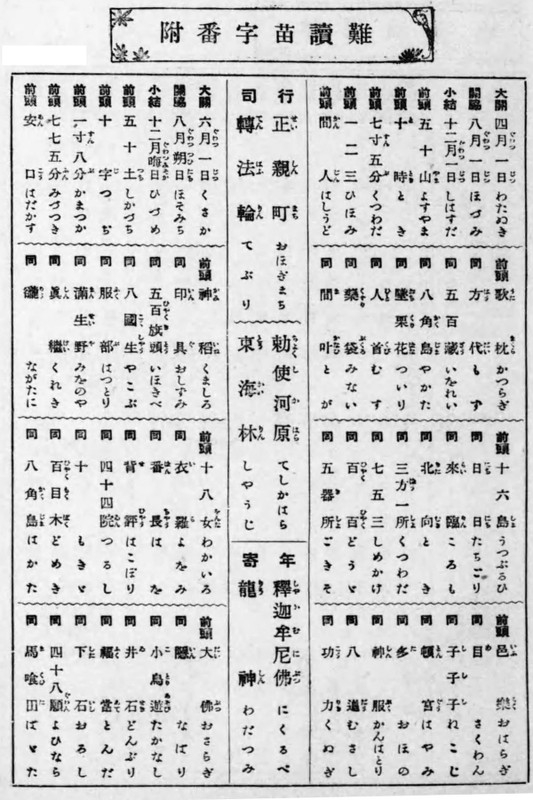 難讀苗字番附
大關 四月一日 わたぬき
關脇 八月一日 ほづみ
小結 十二月一日 しはすだ
前頭 五十山 よすやま
前頭 十時 とき
前頭 七寸五分 くつわだ
前頭 一二三 ひほみ
前頭 間人 はしうど
前頭 歌枕 かつらぎ
同 方代 もず
同 五百藏 いをれい
同 八角島 やかた
同 墜栗花 ついり
同 人首 むす
同 藥袋 みない
同 間叶 とが
前頭 十六島 うつぶるひ
同 日日 たちこり
同 來臨 ころも
同 北向 とき
同 三方一所 くつわだ
同 七五三 しめかけ
同 百百 どうど
同 五器所 ごきそ
前頭 邑樂 おはらぎ
同 目 さくわん
同 子子子 れこじ
同 頓宮 はやみ
同 多 おほの
同 神服 かんはとり
同 八進 むさし
同 功力 くぬぎ
行司
正親町 おほぎまち
轉法輪 てぶり
勅使河原 てしかはら
東海林 しやうじ
年寄
釋迦牟尼佛 にくるべ
龍神 わだつみ
大關 六月一日 くさか
關脇 八月朔日 ほそみち
小結 十二月晦日 ひづめ
前頭 五十土 しかづち
前頭 十字 つぢ
前頭 一寸八分 かまつか
前頭 七七五分 みづつき
前頭 安口 はだかす
前頭 神稻 くましろ
同 印具 おしずみ
同 五百旗頭 いほきべ
同 八國生 やこぶ
同 服部 はつとり
同 滿生野 みをのや
同 眞繼 くれき
同 瀧 ながたに
前頭 十八女 わかいろ
同 衣羅 よをみ
同 番長 はを
同 背評 はこぼり
同 四十四院 つるし
同 十 もぎき
同 百目木 どめき
同 八角島 はかた
前頭 大佛 おさらぎ
同 隱 なばり
同 小鳥遊 たかなし
同 井石 どんぶり
同 福當 とんだ
同 下石 おろし
同 四十八願 よひなら
同 馬喰田 ばくた